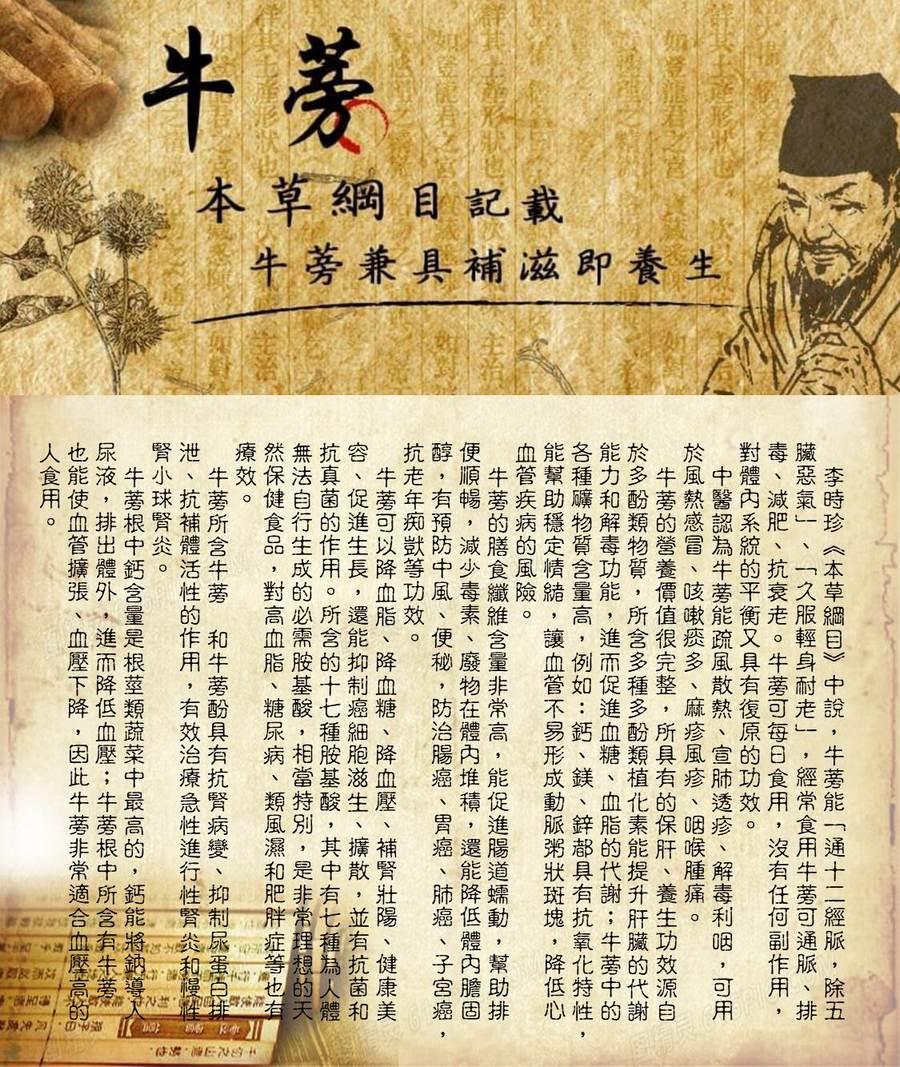 牛蒡
本草綱目記載
牛蒡兼具補滋即養生
李時珍《本草綱目》中說，牛蒡能「通十二經脈，除五
臟惡氣」、「久服輕身耐老」，經常食用牛蒡可通脈、排
毒、減肥、抗衰老。牛蒡可每日食用，沒有任何副作用，
對體內系統的平衡又具有復原的功效。
中醫認為牛蒡能疏風散熱、宣肺透疹、解毒利咽，可用
於風熱感冒、咳嗽痰多、麻疹風疹、咽喉腫痛。
牛蒡的營養價值很完整，所具有的保肝、養生功效源自
於多酚類物質，所含多種多酚類植化素能提升肝臟的代謝
能力和解毒功能，進而促進血糖、血脂的代謝；牛蒡中的
各種礦物質含量高，例如：鈣、鎂、鋅都具有抗氧化特性，
能幫助穩定情緒，讓血管不易形成動脈粥狀斑塊，降低心
血管疾病的風險。
牛蒡的膳食纖維含量非常高，能促進腸道蠕動，幫助排
便順暢，減少毒素、廢物在體內堆積，還能降低體內膽固
醇，有預防中風、便秘，防治腸癌、胃癌、肺癌、子宮癌，
抗老年痴獃等功效。
牛蒡可以降血脂、降血糖、降血壓、補腎壯陽、健康美
容、促進生長，還能抑制癌細胞滋生、擴散，並有抗菌和
抗真菌的作用。所含的十七種胺基酸，其中有七種為人體
無法自行生成的必需胺基酸，相當特別，是非常理想的天
然保健食品，對高血脂、糖尿病、類風濕和肥胖症等也有
療效。
牛蒡所含牛蒡 和牛蒡酚具有抗腎病變、抑制尿蛋白排
泄、抗補體活性的作用，有效治療急性進行性腎炎和慢性
腎小球腎炎。
牛蒡根中鈣含量是根莖類蔬菜中最高的，鈣能將鈉導入
尿液，排出體外，進而降低血壓；牛蒡根中所含有牛蒡
也能使血管擴張、血壓下降，因此牛蒡非常適合血壓高的
人食用。